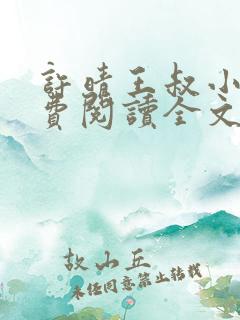 許晴王叔小
費閱讀全文
故山丘
未經同意禁止轉載